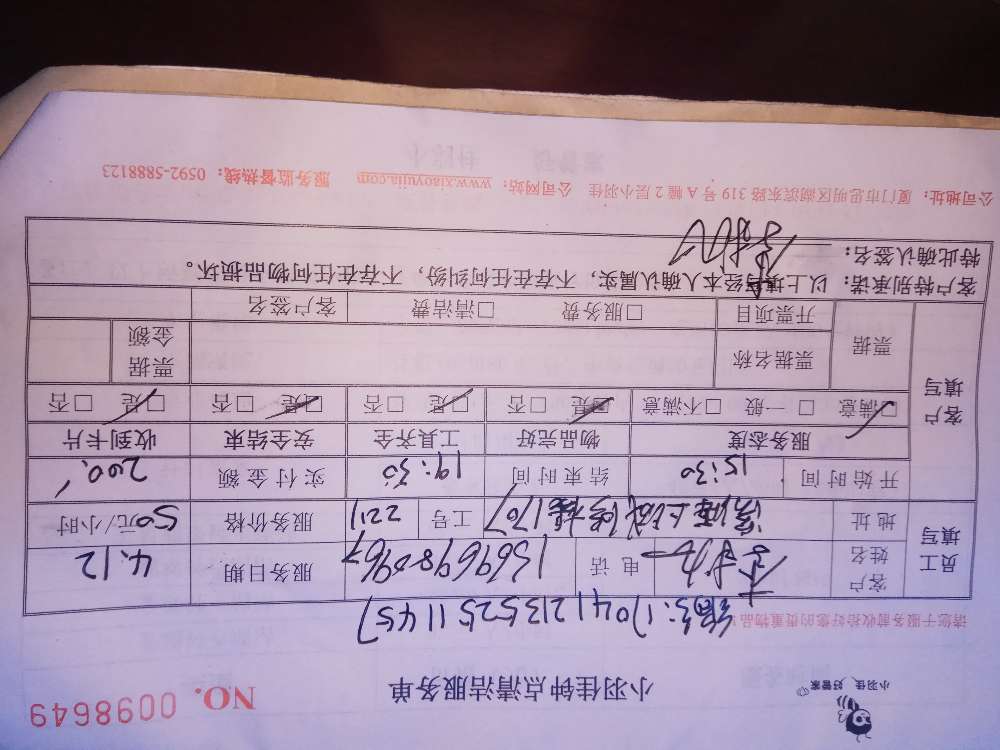 小羽佳，好管家
小羽佳钟点清洁服务单
NO. 0098649
请您于服务前收拾好您的贵重物品！
编号:1704121352511457
员工填写
客户姓名 电话 13696980967 服务日期 4.12
地址 1707 工号 2211 服务价格 50元/小时
客户填写
开始时间 15:30 结束时间 19:30 实付金额 200.
服务态度 物品完好 工具齐全 安全结束 收到卡片
☑满意 □一般 □不满意 ☑是 □否 ☑是 □否 ☑是 □否 ☑是 □否
票据 票据名称 票据金额
开票项目 □服务费 □清洁费 客户签名
客户特别承诺：以上填写经本人确认属实，不存在任何纠纷，不存在任何物品损坏。
特此确认签名：
公司地址：厦门市思明区湖滨东路 319 号 A 幢 2 层小羽佳 公司网站：www.xiaoyujia.com 服务监督热线：0592-5888123